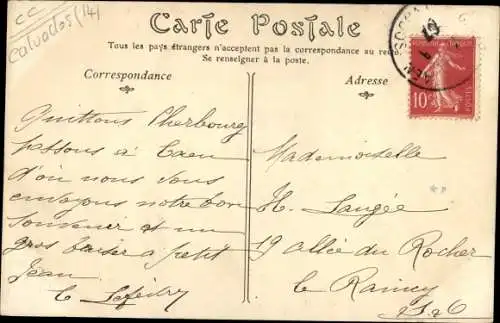 CC
Calvados (14)
Carte Postale
Tous les pays étrangers n'acceptent pas la correspondance au
Se renseigner à la poste.
Correspondance
Adresse
10c
POSTES
Quittons Cherbourg
passons à Caen
d'où nous vous
envoyons notre bon
souvenir et un
gros baiser a petit
Jean
Mademoiselle
H. Laugée
19 allée du Rocher
le Raincy
S. & O